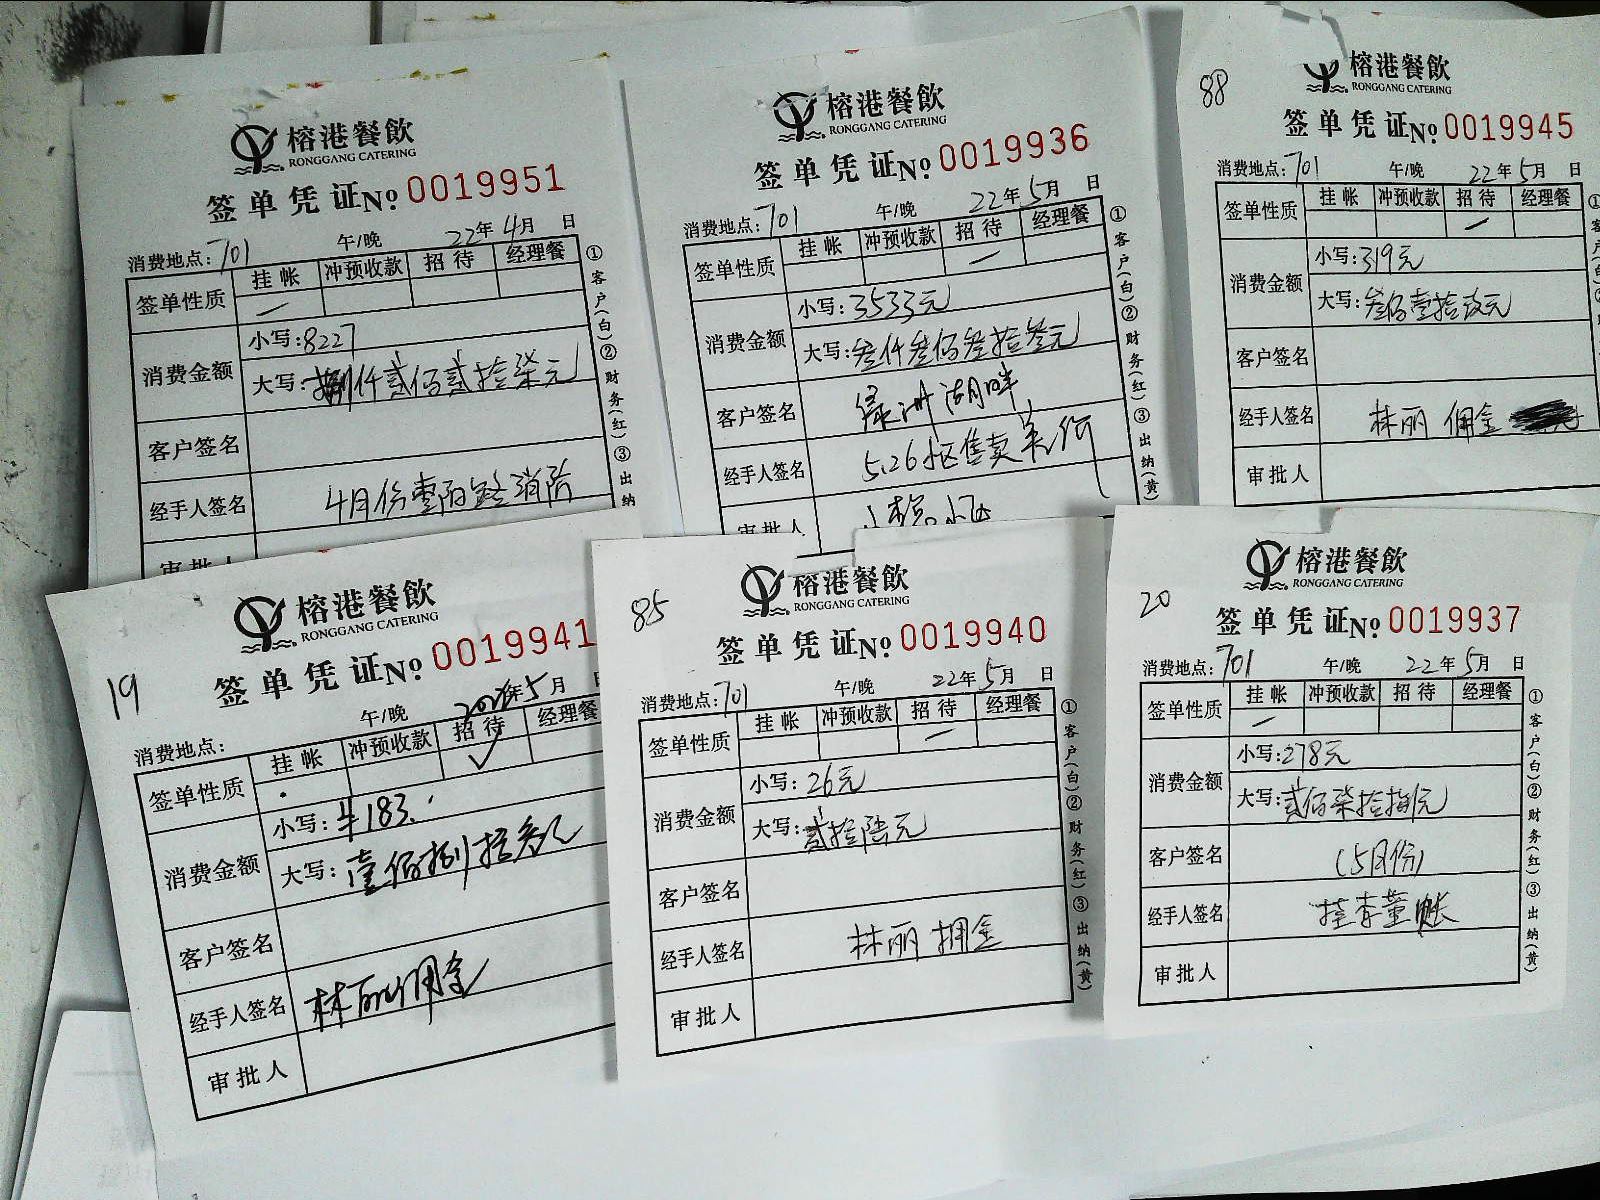 榕港餐飲
RONGGANG CATERING
签单凭证No 0019951
消费地点:701 午/晚 22年4月 日
签单性质 挂帐 冲预收款 招待 经理餐
消费金额 小写:8227
大写:捌仟贰佰贰拾柒元
客户签名
经手人签名 4月份 消防
审批人
①客户(白)②财务(红)③出纳
榕港餐飲
RONGGANG CATERING
签单凭证No 0019936
消费地点:701 午/晚 22年5月 日
签单性质 挂帐 冲预收款 招待 经理餐
消费金额 小写:3533元
大写:叁仟叁佰叁拾叁元
客户签名 绿洲湖畔
经手人签名 5.26 售卖
审批人
①客户(白)②财务(红)③出纳(黄)
88
榕港餐飲
RONGGANG CATERING
签单凭证No 0019945
消费地点:701 午/晚 22年5月 日
签单性质 挂帐 冲预收款 招待 经理餐
消费金额 小写:319元
大写:叁佰壹拾玖元
客户签名
经手人签名 林丽 佣金
审批人
19
榕港餐飲
RONGGANG CATERING
签单凭证No 0019941
消费地点: 午/晚 2022年5月 日
签单性质 挂帐 冲预收款 招待 经理餐
✓
消费金额 小写:¥183.
大写:壹佰捌拾叁元
客户签名
经手人签名 林丽佣金
审批人
85
榕港餐飲
RONGGANG CATERING
签单凭证No 0019940
消费地点:701 午/晚 22年5月 日
签单性质 挂帐 冲预收款 招待 经理餐
消费金额 小写:26元
大写:贰拾陆元
客户签名
经手人签名 林丽 拥金
审批人
①客户(白)②财务(红)③出纳(黄)
20
榕港餐飲
RONGGANG CATERING
签单凭证No 0019937
消费地点:701 午/晚 22年5月 日
签单性质 挂帐 冲预收款 招待 经理餐
消费金额 小写:278元
大写:贰佰柒拾捌元
客户签名 (5月份)
经手人签名 挂李董帐
审批人
①客户(白)②财务(红)③出纳(黄)